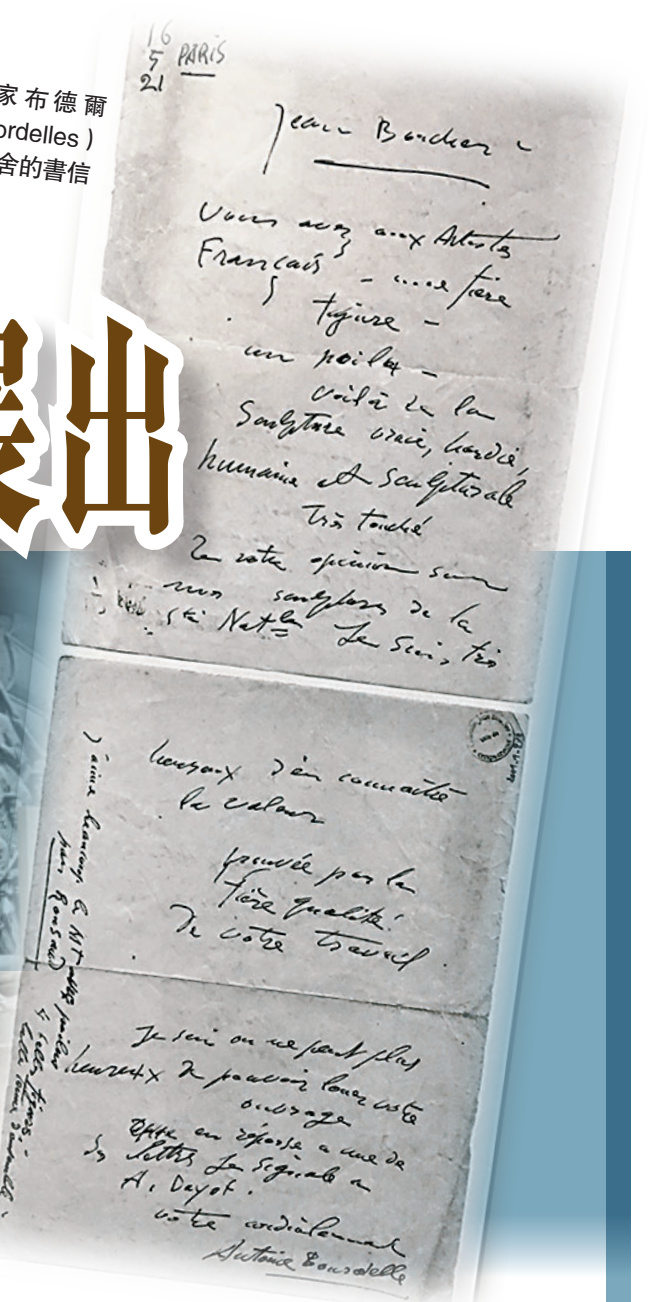 家布德爾
ordelles）
舍的書信
出
16
5
21
PARIS
Jean Boucher
Vous avez aux Artistes
Français - une fière
figure -
un poilu -
voilà de la
Sculpture vraie, hardie,
humaine et sculpturale
très touché
De votre opinion sur
mes sculptures de la
Sté Natle Je suis, très
heureux d'en connaître
la valeur
prouvée par la
fière qualité.
De votre travail
Je suis on ne peut plus
heureux de pouvoir louer votre
ouvrage
en réponse a une de
ses lettres Je signale a
A. Dayot.
votre cordialement
Antoine Bourdelle
J'aime beaucoup le
pour Ronsard
belles figures